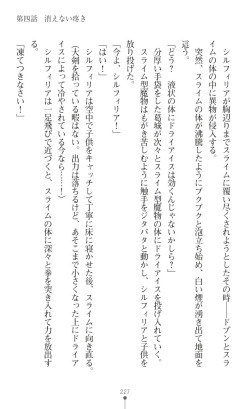 第四話　消えない疼き
シルフィリアが胸辺りまでスライムに覆い尽くされようとしたその時――ドプンとスラ
イムの体の中に異物が侵入する。
突然、スライムの体が沸騰したようにブクブクと泡立ち始め、白い煙が湧き出て地面を
這う。
「どう？　液状の体にドライアイスは効くんじゃないかしら？」
分厚い手袋をした葛城が次々とスライム型魔物の体にドライアイスを投げ入れていく。
スライム型魔物はもがき苦しむように触手をジタバタと動かし、シルフィリアと子供を
放り投げた。
「今よ、シルフィリア！」
「はい！」
シルフィリアは空中で子供をキャッチして丁寧に床に寝かせた後、スライムに向き直る。
（大剣を拾っている暇はない。出力は落ちるけど、あそこまで小さくなった上にドライア
イスによって冷やされている今なら……！）
シルフィリアは一足飛びで近づくと、スライムの体に深々と拳を突き入れて力を放出す
る。
「凍てつきなさい！」
227